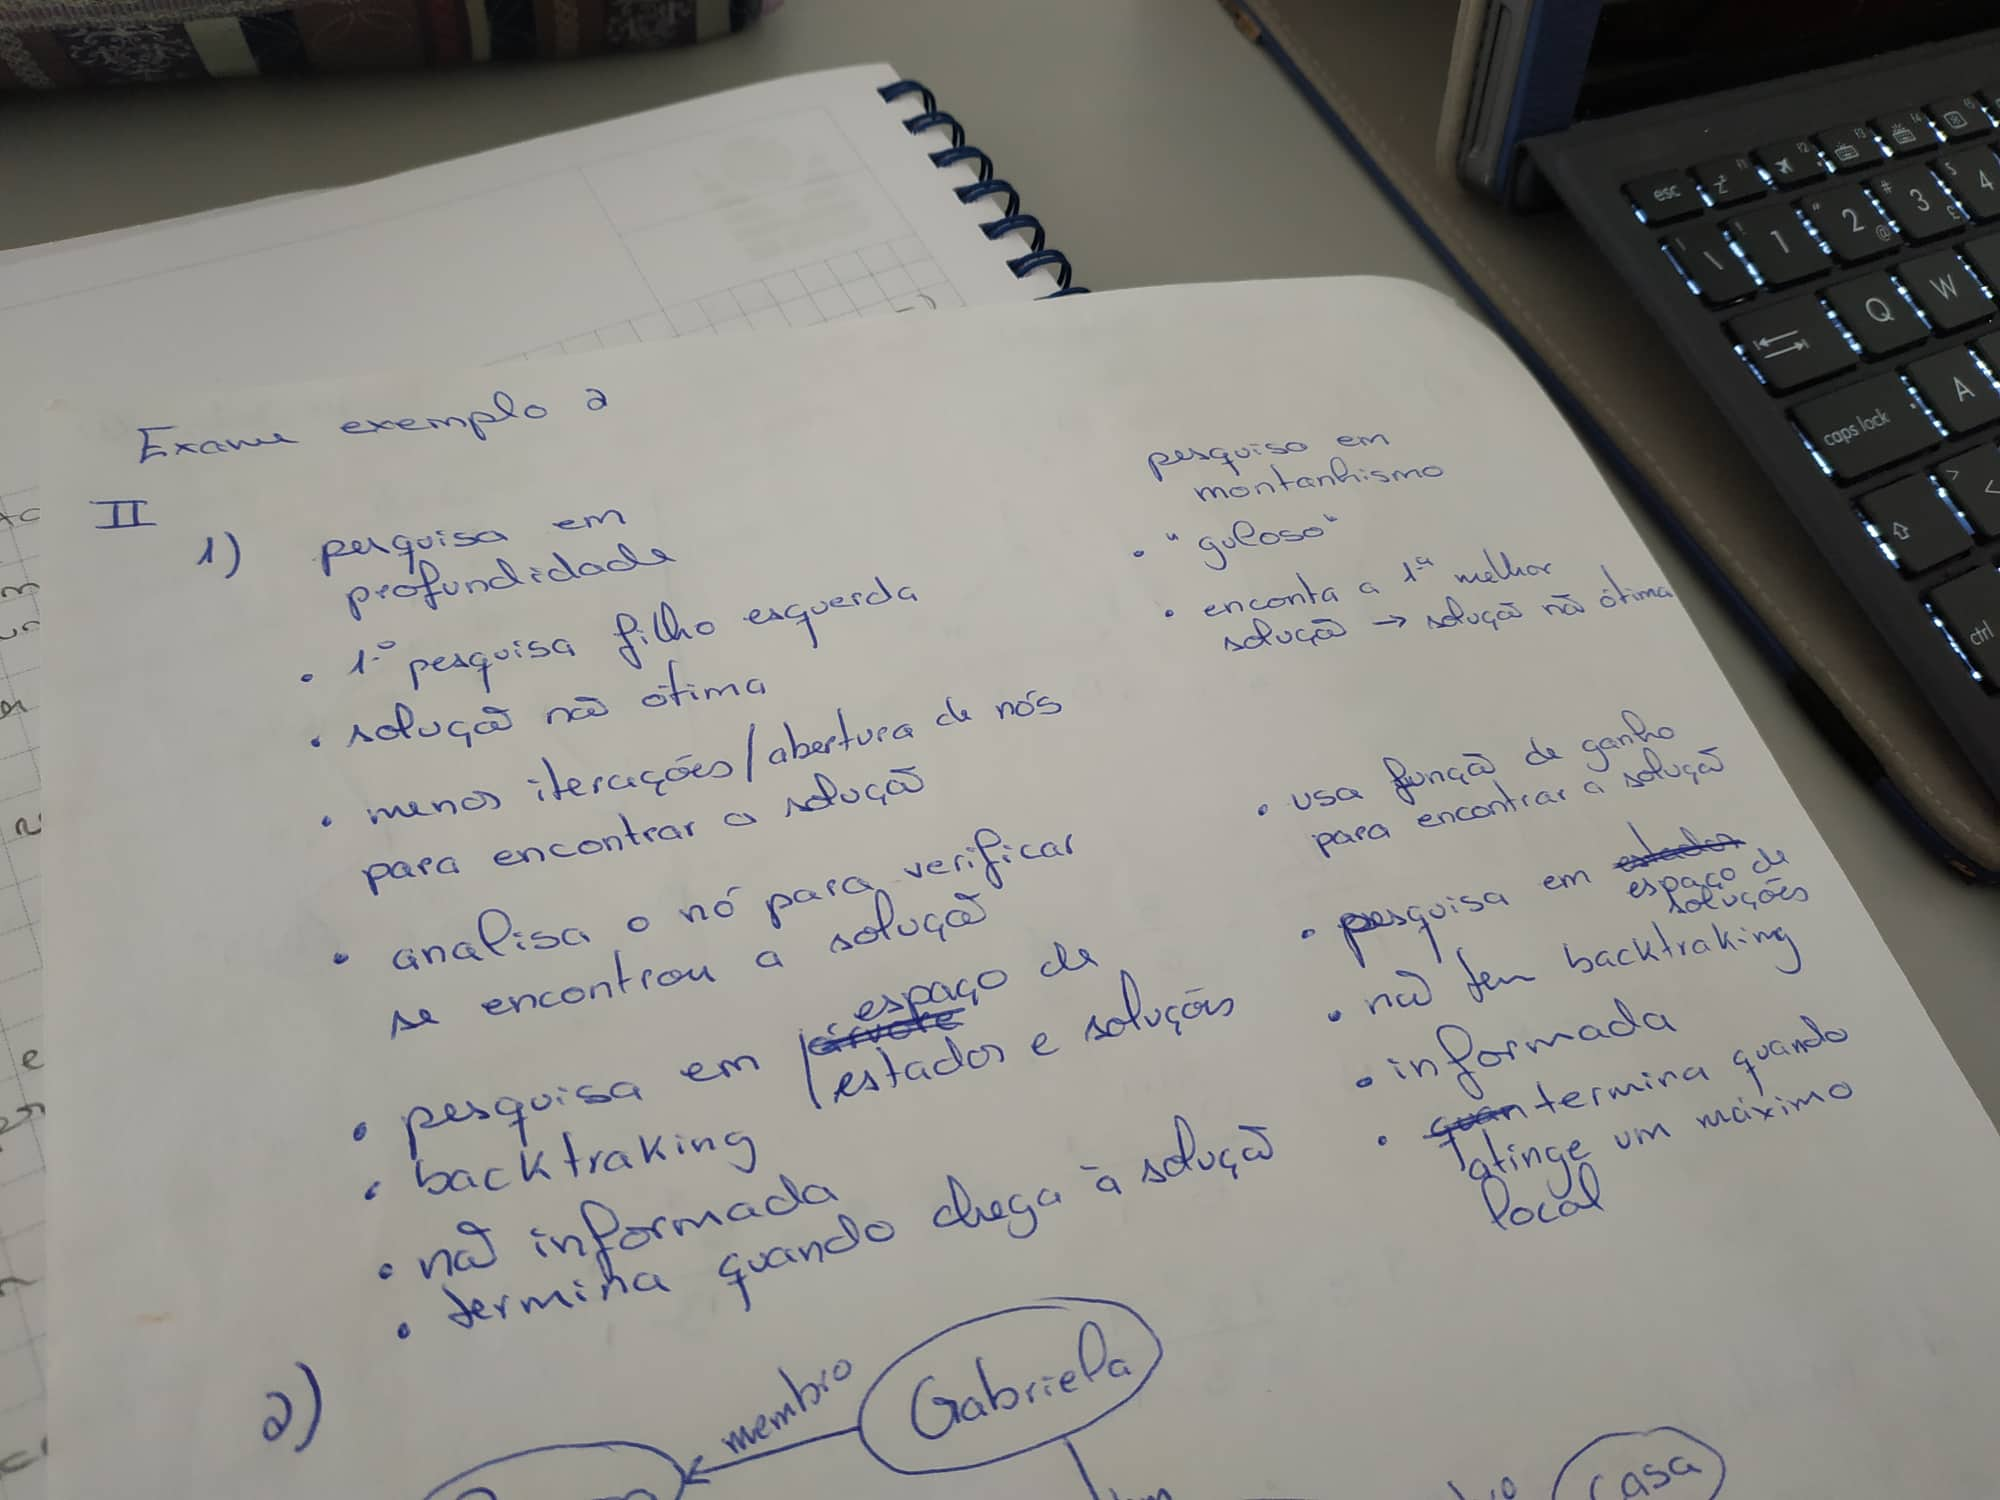 Exame exemplo 2
II
1) pesquisa em
profundidade
• 1.º pesquisa filho esquerda
• solução não ótima
• menos iterações/abertura de nós
para encontrar a solução
• analisa o nó para verificar
se encontrou a solução
• pesquisa em espaço de
estados e soluções
• backtraking
• não informada
• termina quando chega à solução
pesquisa em
montanhismo
• "guloso"
• enconta a 1ª melhor
solução → solução não ótima
• usa função de ganho
para encontrar a solução
• pesquisa em estados
espaço de
soluções
• não tem backtraking
• informada
• termina quando
atinge um máximo
local
2)
membro
Gabriela
casa
esc
F1
F2
F3
F4
F5
z
\
|
! 1
" 2 @
# 3 £
$ 4
Q
W
caps lock
A
> <
ctrl